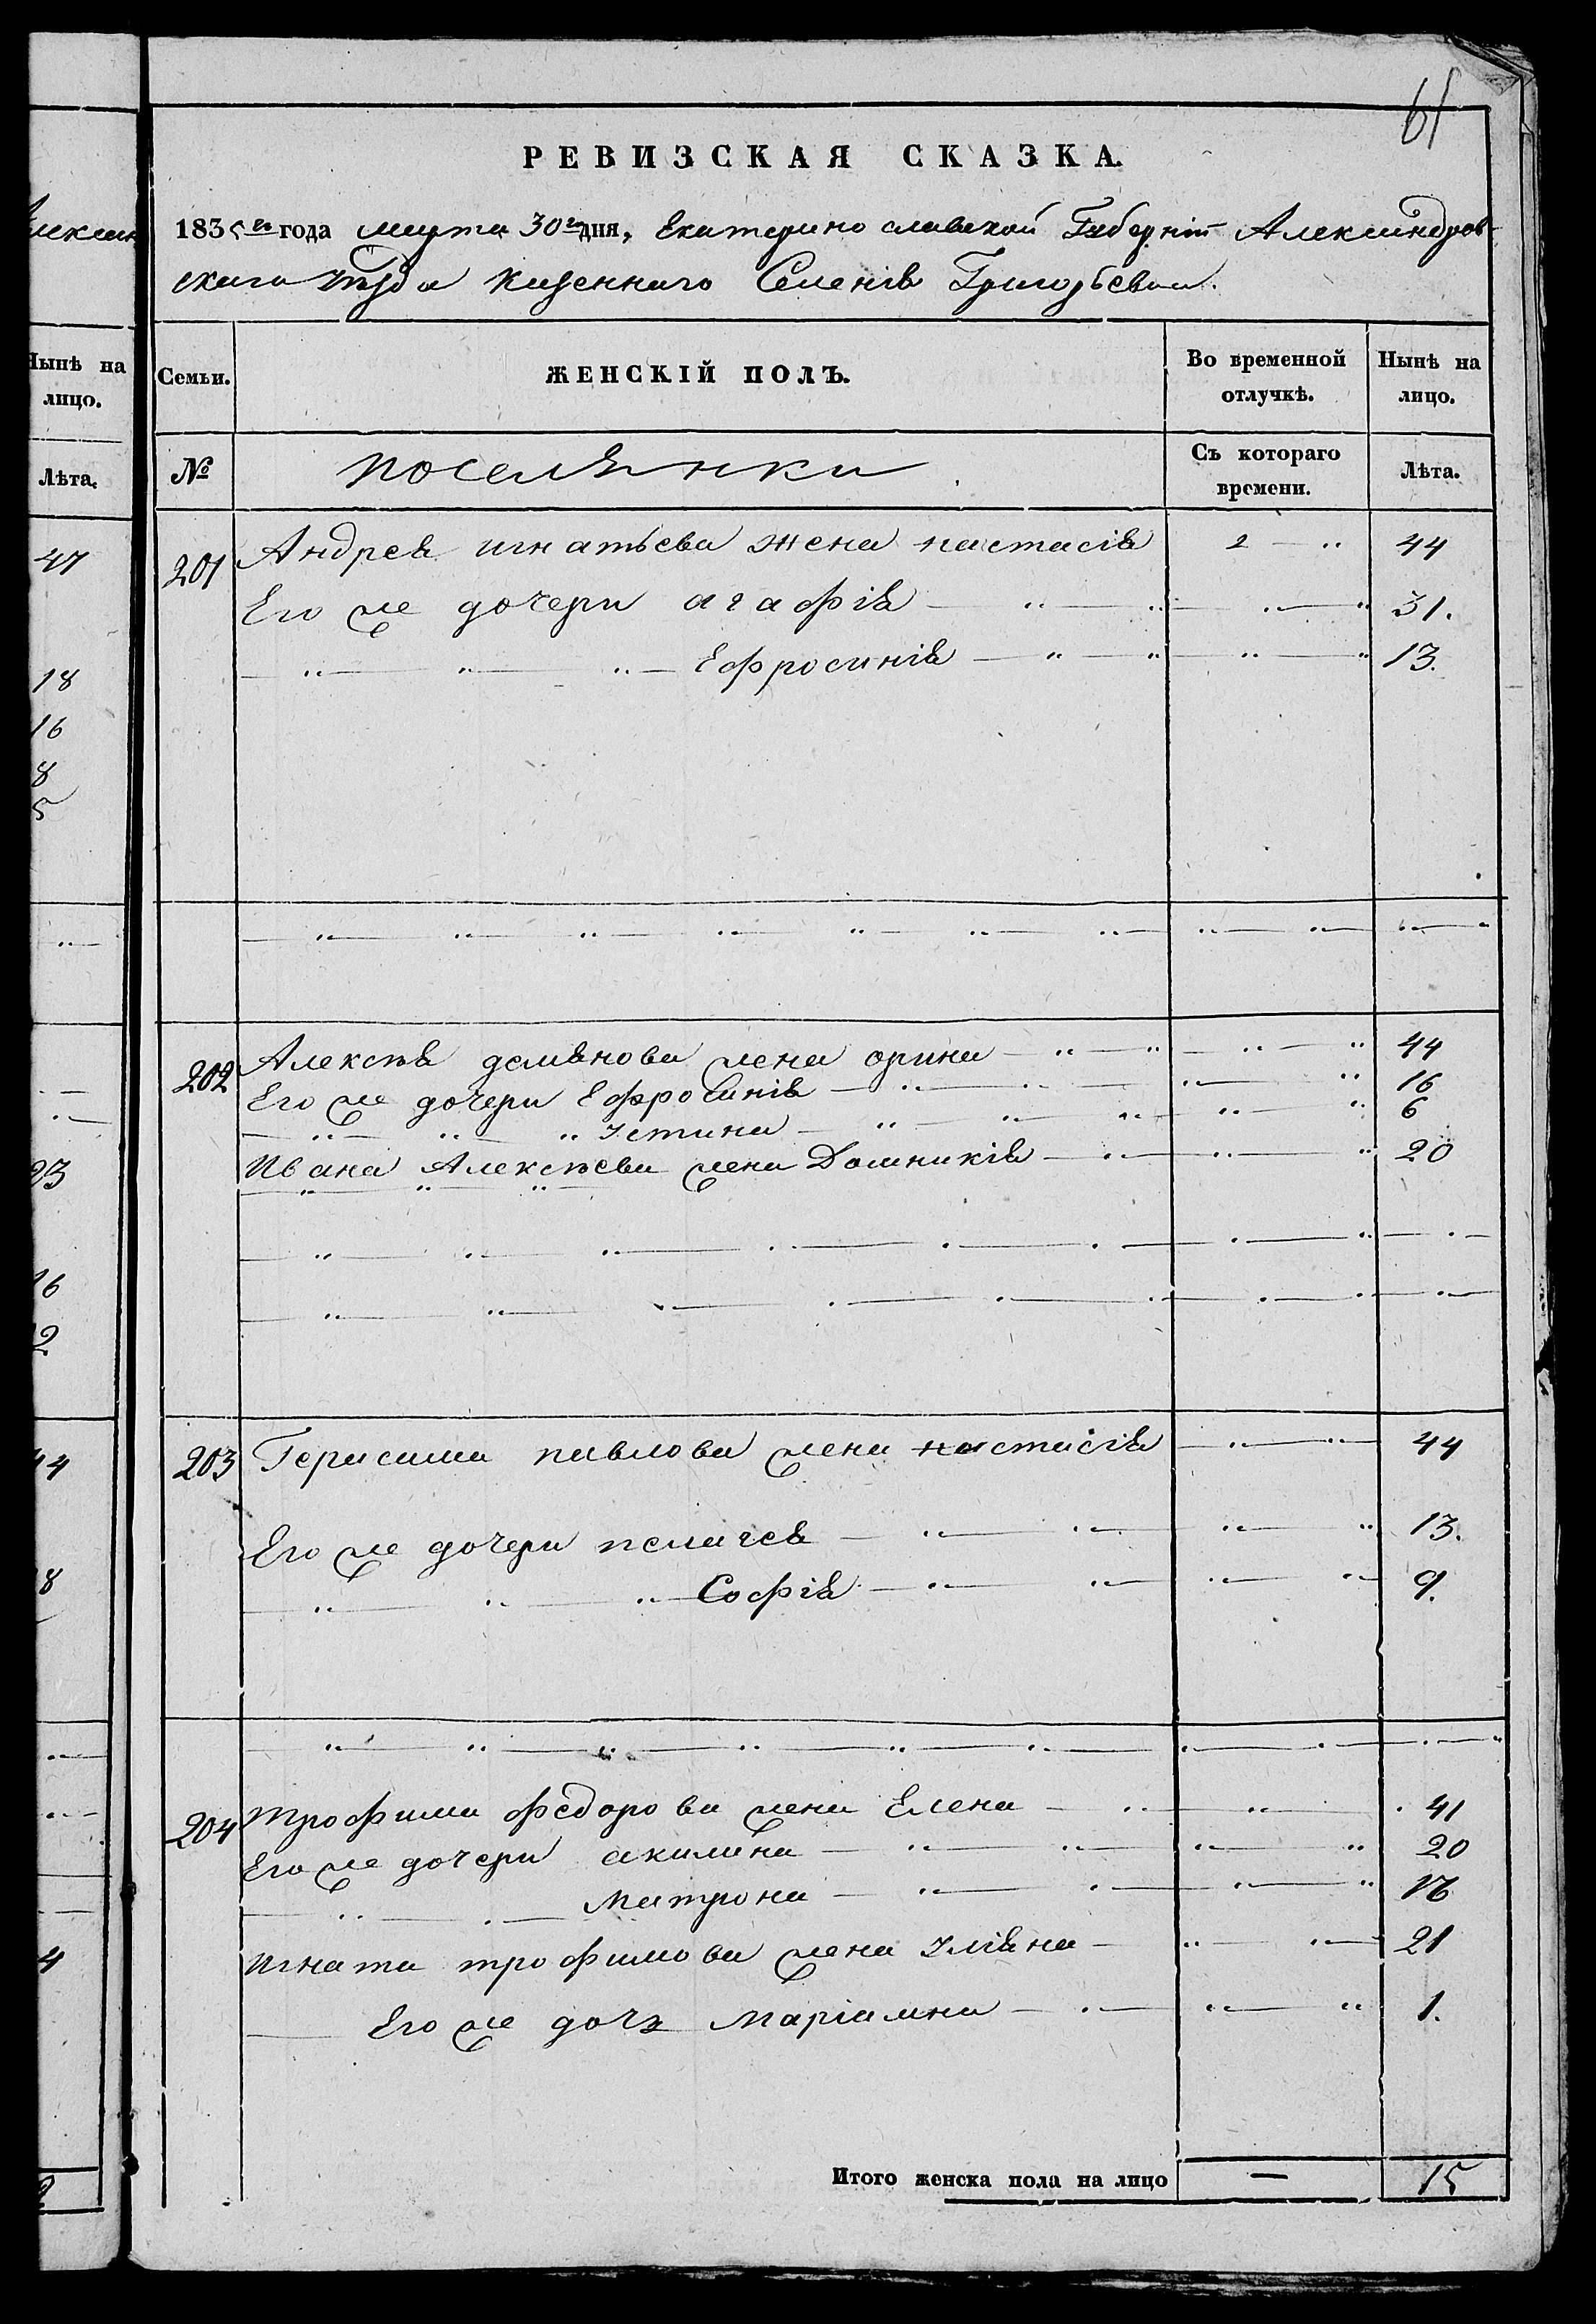 61
РЕВИЗСКАЯ СКАЗКА.
1835 го года марта 30 го дня, Екатерино славской Губерніи Александров-
скаго уѣзда казеннаго Селенія Григорьевки.
Семьи. ЖЕНСКІЙ ПОЛЪ. Во временной отлучкѣ. Нынѣ на лицо.
№ поселянки Съ котораго времени. Лѣта.
201 Андрея игнатьева жена настасія 44
Его же дочери агафія 31.
Ефросинія 13.
202 Алексѣя демянова жена орина 44
Его же дочери Ефросинія 16
устина 6
Ивана Алексѣева жена Домникія 20
203 Герасима павлова жена настасія 44
Его же дочери пелагея 13.
Софія 9.
204 трофима федорова жена Елена 41
Его же дочери акилина 20
Матрона 16
игната трофимова жена уліяна 21
Его же дочь Маріамна 1.
Итого женска пола на лицо — 15
Нынѣ на лицо.
Лѣта.
47
18
16
8
5